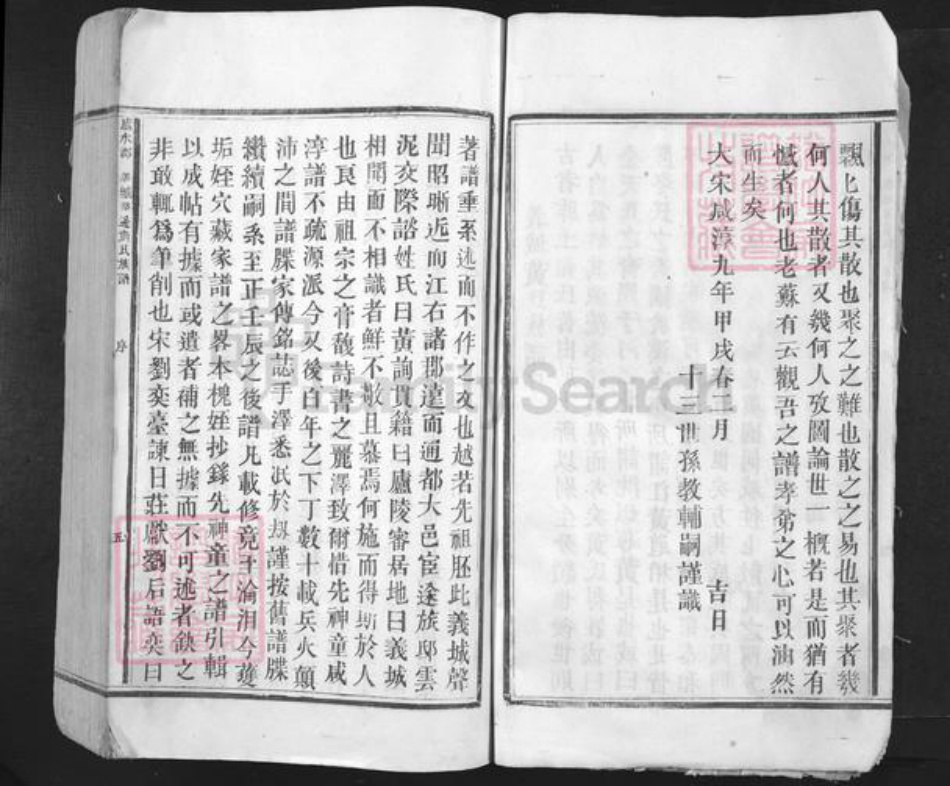 飄乚傷其散也聚之之難也散之之易也其聚者幾
何人其散者又幾何人攷圖論世一槪若是而猶有
憾者何也老蘇有云觀吾之譜孝弟之心可以油然
而生矣
大宋咸淳九年甲戌春二月 吉日
十三世孫教輔嗣謹識
著譜垂系述而不作之攷也越若先祖胚此義城聲
聞昭晰近而江右諸郡遠而通都大邑宦逹族邸雲
泥交際諮姓氏曰黃詢貫籍曰廬陵審居地曰義城
相聞而不相識者鮮不敬且慕焉何施而得斯於人
也良由祖宗之膏馥詩書之麗澤致爾惜先神童咸
淳譜不疏源派今又後百年之下丁數十載兵火顛
沛之間譜牒家傳銘誌手澤悉泯於燬謹按舊譜牒
纘續嗣系至正壬辰之後譜凡載修竟干淪泪今獲
垢姪穴藏家譜之畧本槐姪抄錄先神童之譜引輯
以成帖有據而或遺者補之無據而不可述者缺之
非敢輒爲筆削也宋劉奕臺諫日莊獻劉后語奕曰
序
五
FamilySearch